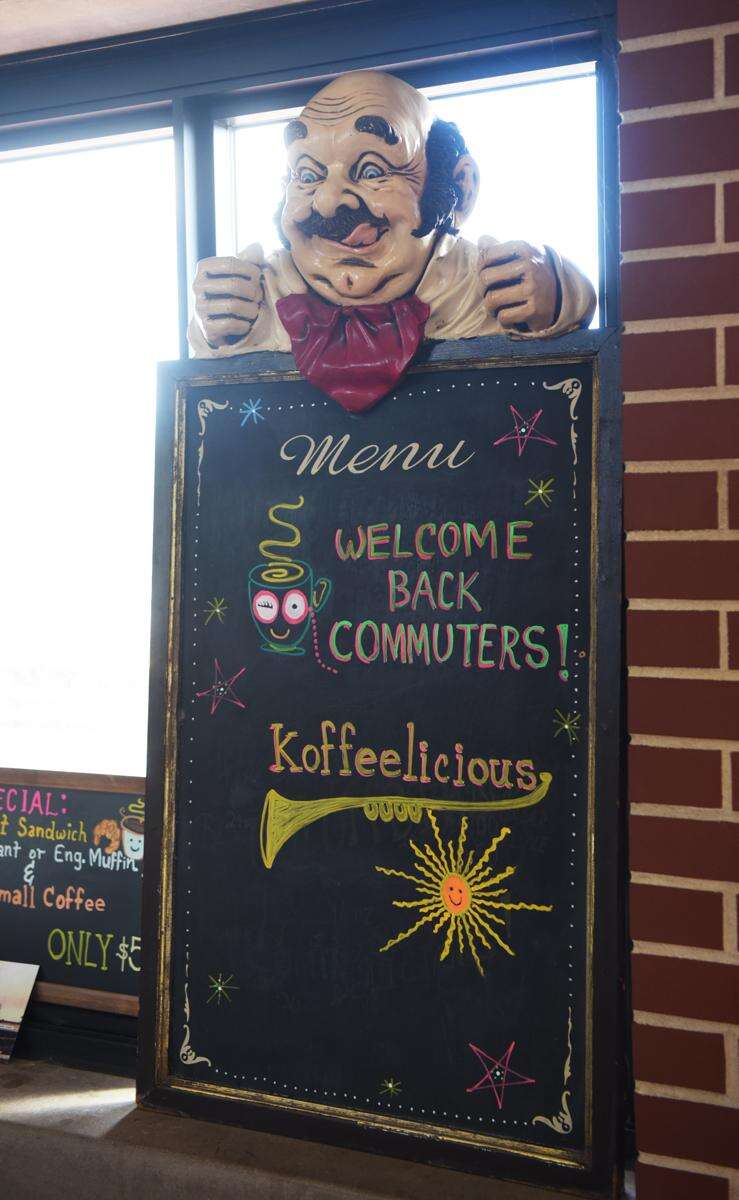 Menu
WELCOME
BACK
COMMUTERS!
Koffeelicious
ECIAL:
t Sandwich
ant or Eng. Muffin
&
mall Coffee
ONLY $5